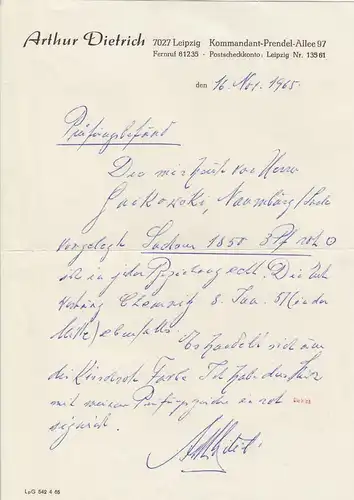 Arthur Dietrich 7027 Leipzig Kommandant-Prendel-Allee 97
Fernruf 61235 - Postscheckkonto: Leipzig Nr. 13561
den 16. Nov. 1965
Prüfungsbefund
Die mir heute von Herrn
Naumburg/Saale
vorgelegte Sachsen 1850 3 Pf rot O
ist in jeder Beziehung echt. Die
Chemnitz 8. Jan. 51 (in der
Mitte) ebenfalls. Es handelt sich um
die Farbe Ich habe das Stück
mit meinem Prüfungszeichen in rot
signiert.
LpG 642 4 65